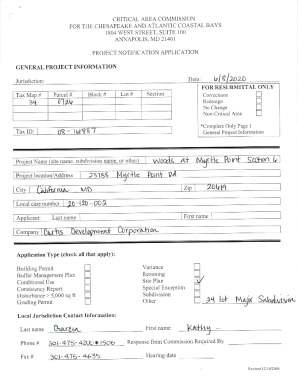 CRITICAL AREA COMMISSION
FOR THE CHESAPEAKE AND ATLANTIC COASTAL BAYS
1804 WEST STREET, SUITE 100
ANNAPOLIS, MD 21401
PROJECT NOTIFICATION APPLICATION
GENERAL PROJECT INFORMATION
Jurisdiction: Date: 6/8/2020
Tax Map # Parcel # Block # Lot # Section
34 0726
FOR RESUBMITTAL ONLY
Corrections
Redesign
No Change
Non-Critical Area
*Complete Only Page 1
General Project Information
Tax ID: 08-
Project Name (site name, subdivision name, or other) Woods at Myrtle Point Section 6
Project location/Address 23758 Myrtle Point Rd
City California, MD Zip 20619
Local case number 20-120-002
Applicant: Last name First name
Company Curtis Development Corporation
Application Type (check all that apply):
Building Permit
Buffer Management Plan
Conditional Use
Consistency Report
Disturbance > 5,000 sq ft
Grading Permit
Variance
Rezoning
Site Plan
Special Exception
Subdivision
Other 24 lot Major Subdivision
Local Jurisdiction Contact Information:
Last name First name Kathy
Phone # 301-475-4200 #1506 Response from Commission Required By
Fax # 301-475-4635 Hearing date
Revised 12/14/2006